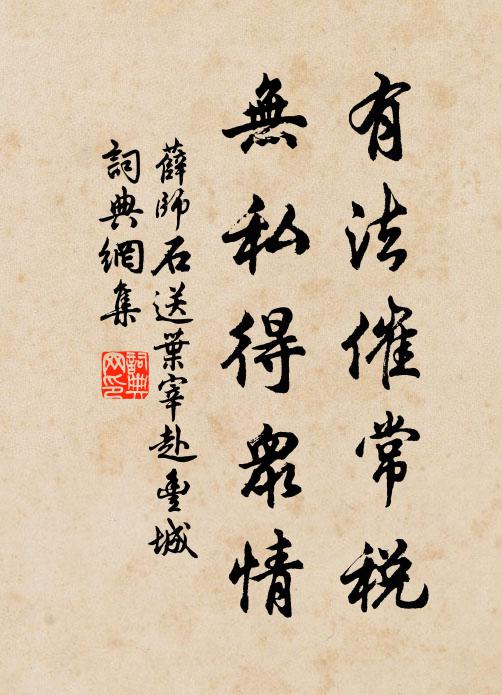 有法催常稅
無私得眾情
薛師石送葉宰赴豐城
詞典網集
詞典
网印